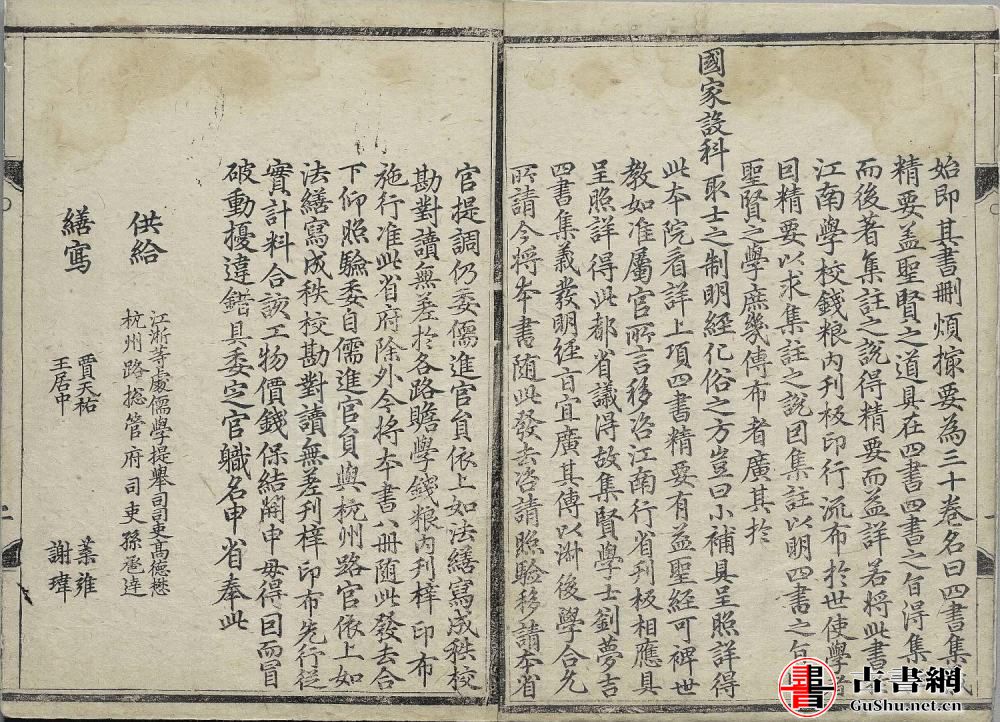 始即其書刪煩撮要為三十卷名曰四書集義
精要盖聖賢之道具在四書四書之旨得集
而後著集註之說得精要而益詳若將此書
江南學校錢粮內刊板印行流布於世使學者
因精要以求集註之說因集註以明四書之旨
聖賢之學庶幾傳布者廣其於
國家設科取士之制明經化俗之方豈曰小補具呈照詳得
此本院看詳上項四書精要有益聖經可裨世
教如准屬官所言移咨江南行省刊板相應具
呈照詳得此都省議得故集賢學士劉夢吉
四書集義發明經旨宜廣其傳以淑後學合允
所請今將本書隨此發去咨請照驗移請本省
官提調仍委儒進官員依上如法繕寫成秩校
勘對讀無差於各路贍學錢粮內刊梓印布
施行准此省府除外今將本書八冊隨此發去合
下仰照驗委自儒進官員與杭州路官依上如
法繕寫成秩校勘對讀無差刊梓印布先行從
實計料合該工物價錢保結開申毋得因而冒
破動擾違錯具委定官職名申省奉此
供給
江浙等處儒學提舉司司吏高德懋
杭州路揔管府司吏孫丞逵
繕寫
賈天祐 葉雍
王居中 謝瑋
二
書
古書網
GuShu.net.cn